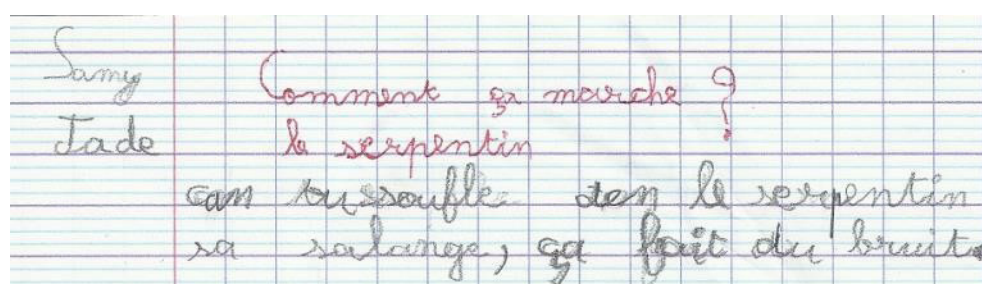 Samy Comment ça marche ?
Jade le serpentin
can tu soufle den le serpentin
sa salange, ça fait du bruit.